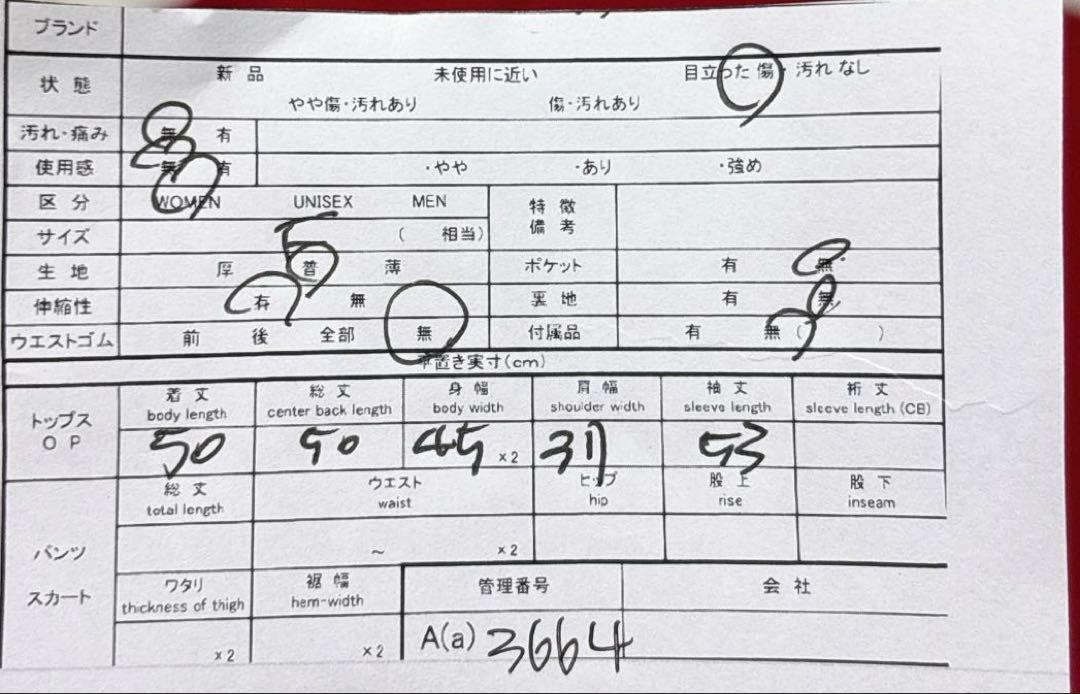 ブランド
状態 新品 未使用に近い 目立った傷・汚れなし
やや傷・汚れあり 傷・汚れあり
汚れ・痛み 無 有
使用感 無 有 ・やや ・あり ・強め
区分 WOMEN UNISEX MEN 特徴備考
サイズ 5 ( 相当)
生地 厚 普 薄 ポケット 有 無
伸縮性 有 無 裏地 有 無
ウエストゴム 前 後 全部 無 付属品 有 無 ( )
平置き実寸(cm)
トップス OP 着丈 総丈 身幅 肩幅 袖丈 裄丈
body length center back length body width shoulder width sleeve length sleeve length (CB)
50 50 45 ×2 53
パンツ スカート 総丈 ウエスト ヒップ 股上 股下
total length waist hip rise inseam
～ ×2
ワタリ 裾幅 管理番号 会社
thickness of thigh hem-width
×2 ×2 A(a) 3664